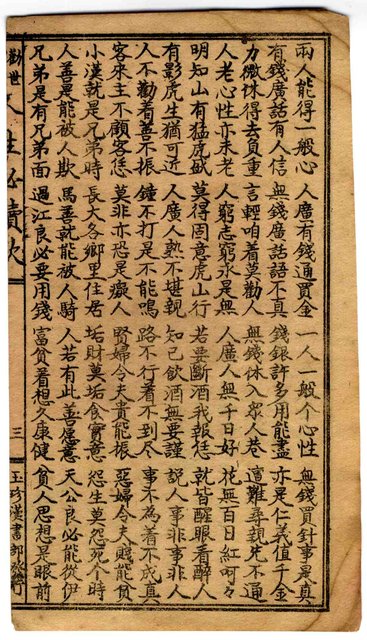 兩人能得一般心 人廣有錢通買金 一人一般个心性 無錢買針事是真
有錢廣話有人信 無錢廣話語不真 錢銀許多用能盡 亦是仁義值千金
力微休得去負重 言輕咱着莫勸人 無錢休入眾人巷 遭難尋親先不通
人老心性亦未老 人窮志窮永是無 人廣人無千日好 花無百日紅呵々
明知山有猛虎威 莫得固意虎山行 若要斷酒我報廷 就皆醒眼看醉人
有影虎生猶可近 人廣人熟不堪親 知己飲酒無要謹 說人事非事非人
人不勸着善不振 鐘不打是不能鳴 路不行着不到尽 事不為着不成真
客來主不顧客恁 莫非亦恐是癡人 賢婦令夫貴能振 惡婦令夫賤能貧
小漢就是兄弟時 長大各鄉里住居 垢財莫垢食實意 怨生莫怨死个時
人善是能被人欺 馬善就能被人騎 人若有此善惡意 天公良必能從伊
兄弟是有兄弟面 過江良必要用錢 富貧看想久康健 貧人思想是眼前
勸世人生必讀歌 三 玉珍漢書部發行